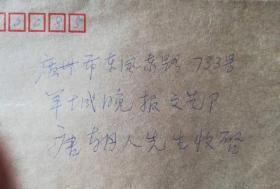 广州市东风东路733号
羊城晚报文艺P
唐 人先生收启